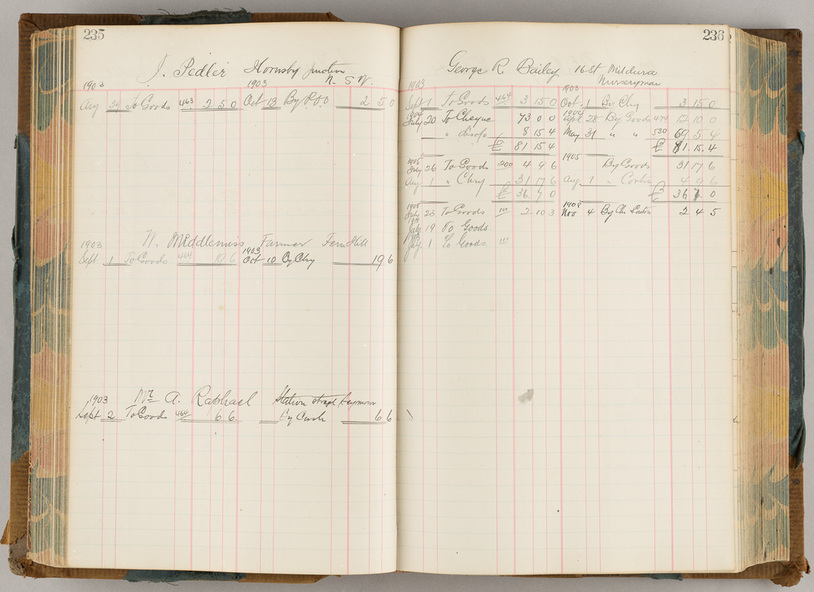 235
J. Pedler Hornsby Junction
N. S. W.
1903 1903
Aug To Goods 463 2 5 0 Oct 13 By P.O.O 2 5 0
W. Middlemiss Farmer Fern Hill
1903 1903
Sept 1 To Goods 464 10 6 Oct 10 By Chq 19 6
Mr A. Raphael Station
1903
Sept 2 To Goods 464 6 6 By Cash 6 6
236
George R Bailey 16th St Mildura
Nurseryman
1903 1903
Sept 1 To Goods 464 3 15 0 Oct 1 By Chq 3 15 0
July 20 To Cheque 73 0 0 Sept 28 By Goods 12 10 0
" 8 15 4 May 31 " " 530 69 5 4
£ 81 15 4 £ 81 15 4
1905 1905
July 26 To Goods 4 9 6 By Goods 31 17 6
Aug 1 " Chq 31 17 6 Aug 1 "
£ 36 7 0 £ 36 7 0
To Goods 2 10 3 Nov 4 By 2 4 5
July 19 To Goods
Aug 1 To Goods